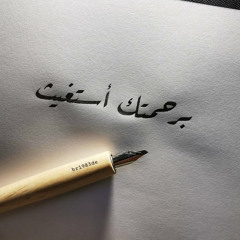 برحمتك أستغيث
hr1983de